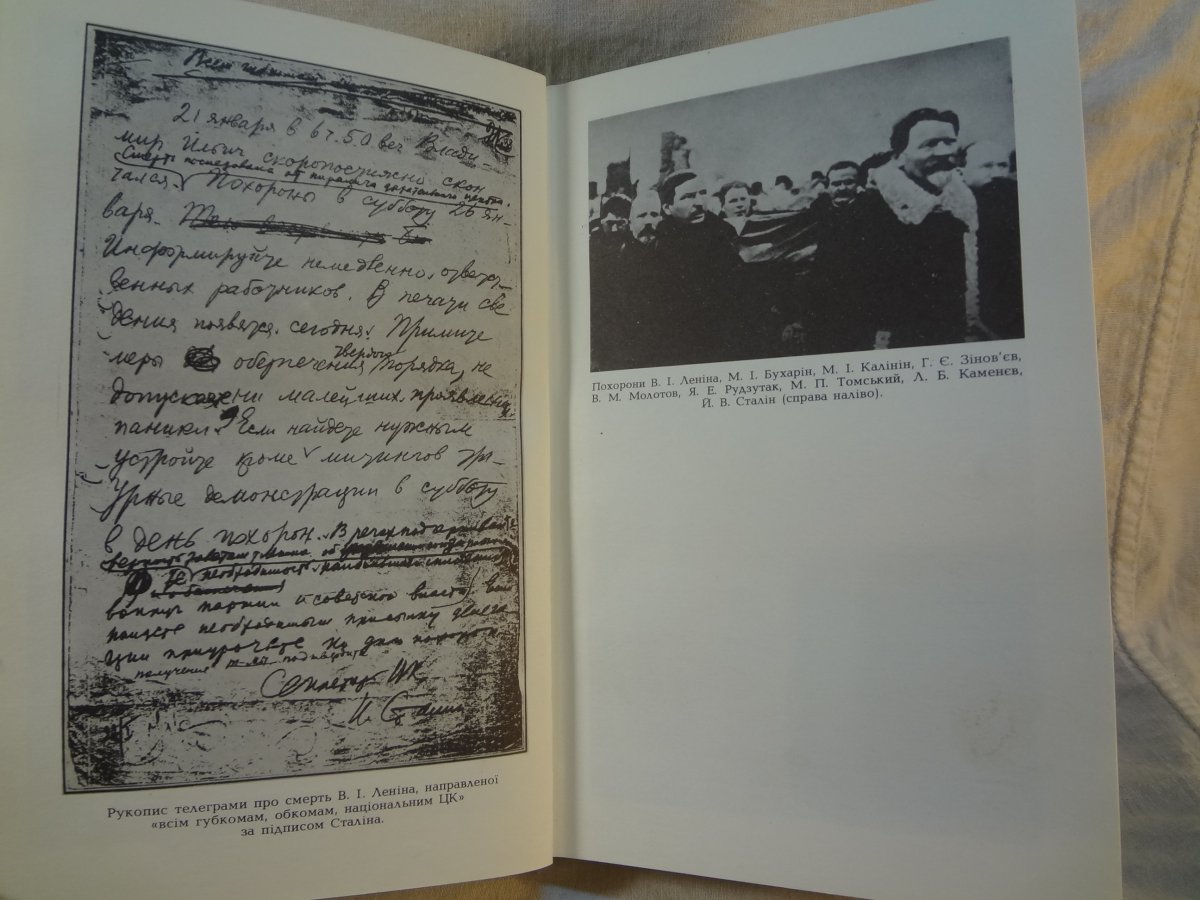 Всем губкомам
21 января в 6 ч. 50 веч Влади-
мир Ильич скоропостижно скон
Смерть последовала от паралича дыхательного центра.
чался. Похороны в субботу 26 ян-
варя.
Информируйте немедленно ответст-
венных работников. В печати све
дения появятся сегодня. Примите
меры обеспечения твердого порядка, не
допускающие малейших проявлений
паники. Если найдете нужным
устройте кроме митингов тра-
урные демонстрации в субботу
в день похорон. В речах
верность заветам
необходимость
вокруг партии и советской власти. Если
найдете необходимым присылку делега
ции приурочьте ко дню похорон
получение подтвердите
Секретарь ЦК
И. Сталин
Рукопис телеграми про смерть В. І. Леніна, направленої
«всім губкомам, обкомам, національним ЦК»
за підписом Сталіна.
Похорони В. І. Леніна, М. І. Бухарін, М. І. Калінін, Г. Є. Зінов'єв,
В. М. Молотов, Я. Е. Рудзутак, М. П. Томський, Л. Б. Каменєв,
Й. В. Сталін (справа наліво).